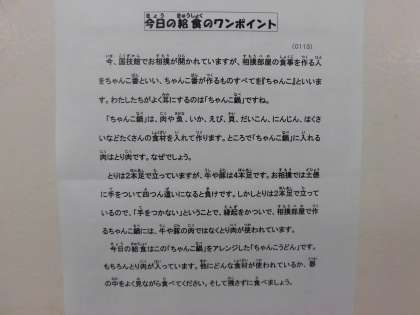 今日の給食のワンポイント
(0113)
今、国技館でお相撲が開かれていますが、相撲部屋の食事を作る人
をちゃんこ番といい、ちゃんこ番が作るものすべてを『ちゃんこ』といいま
す。わたしたちがよく耳にするのは「ちゃんこ鍋」ですね。
「ちゃんこ鍋」は、肉や魚、いか、えび、貝、だいこん、にんじん、はくさ
いなどたくさんの食材を入れて作ります。ところで「ちゃんこ鍋」に入れる
肉はとり肉です。なぜでしょう。
とりは2本足で立っていますが、牛や豚は4本足です。お相撲では土俵
に手をついて四つん這いになると負けです。しかしとりは2本足で立って
いるので、「手をつかない」ということで、縁起をかついで、相撲部屋で作
るちゃんこ鍋には、牛や豚の肉ではなくとり肉が使われています。
今日の給食はこの「ちゃんこ鍋」をアレンジした「ちゃんこうどん」です。
もちろんとり肉が入っています。他にどんな食材が使われているか、器
の中をよく見ながら食べてください。そして残さずに食べましょう。